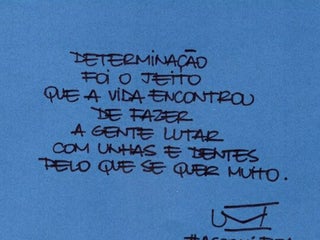 DETERMINAÇÃO
FOI O JEITO
QUE A VIDA ENCONTROU
DE FAZER
A GENTE LUTAR
COM UNHAS E DENTES
PELO QUE SE QUER MUITO.